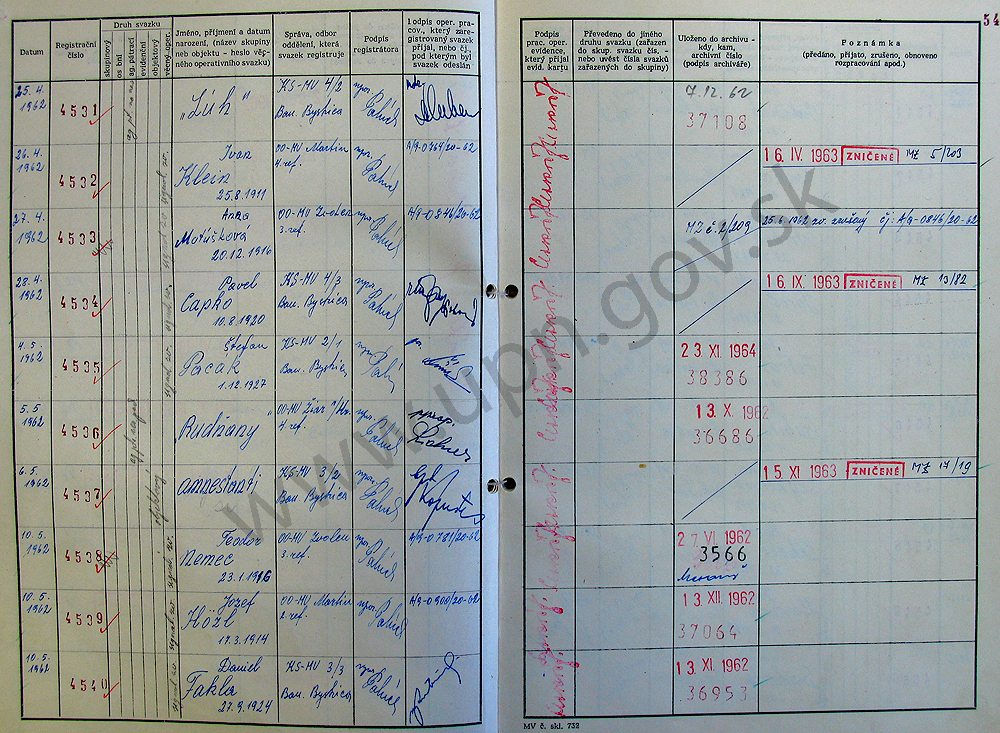 54
Datum
Registrační
číslo
Druh svazku
skupinový
osobní
ag. pátrací
evidenční
objektový
věrný-oper.
Jméno, příjmení a datum
narození, (název skupiny
neb objektu - heslo věp-
ného operativního svazku)
Správa, odbor
oddělení, která
svazek registruje
Podpis
registrátora
Podpis oper. pra-
cov., který zare-
gistrovaný svazek
přijal, nebo čj.,
pod kterým byl
svazek odeslán
Podpis
prac. oper.
evidence,
který přijal
evid. kartu
Převedeno do jiného
druhu svazku (zařazen
do skup. svazku čís. -
nebo uvést čísla svazků
zařazených do skupiny)
Uloženo do archivu
kdy, kam,
archivní číslo
(podpis archiváře)
Poznámka
(předáno, přijato, zrušeno, obnoveno
rozpracování apod.)
25.4.
1962
4531
"Lúh"
KS-MV 4/2
Ban. Bystrica
7.12.62
37108
26.4.
1962
4532
Ivan
Klein
25.8.1911
OO-MV Martin
4.ref.
A/9-0764/20-62
16. IV. 1963 ZNIČENÉ MZ 5/203
27.4.
1962
4533
Anna
Matúšková
20.12.1916
OO-MV Zvolen
3.ref.
A/9-0846/20-62
MZ č. 2/209
25.6.1962 zv. zrušený čj: A/9-0846/20-62
28.4.
1962
4534
Pavel
Capko
10.8.1920
KS-MV 4/3
Ban. Bystrica
16. IX. 1963 ZNIČENÉ MZ 13/82
4.5.
1962
4535
Štefan
Pacák
1.12.1927
KS-MV 2/1
Ban. Bystrica
23 XI. 1964
38386
5.5
1962
4536
Rudňany
OO-MV Žiar n/Hr.
4.ref.
13. X. 1962
36686
6.5.
1962
4537
amnestanti
KS-MV 3/2
Ban. Bystrica
15. XI 1963 ZNIČENÉ MZ 17/19
10.5.
1962
4538
Teodor
Nemec
23.1.1916
OO-MV Zvolen
3.ref.
A/9-0781/20-62
27 VI. 1962
3566
10.5.
1962
4539
Jozef
Hözl
17.3.1914
OO-MV Martin
2.ref.
A/9-0900/20-62
13. XII. 1962
37064
10.5.
1962
4540
Daniel
Fakla
27.9.1924
KS-MV 3/3
Ban. Bystrica
13 XI. 1962
36953
MV č. skl. 732
www.upn.gov.sk